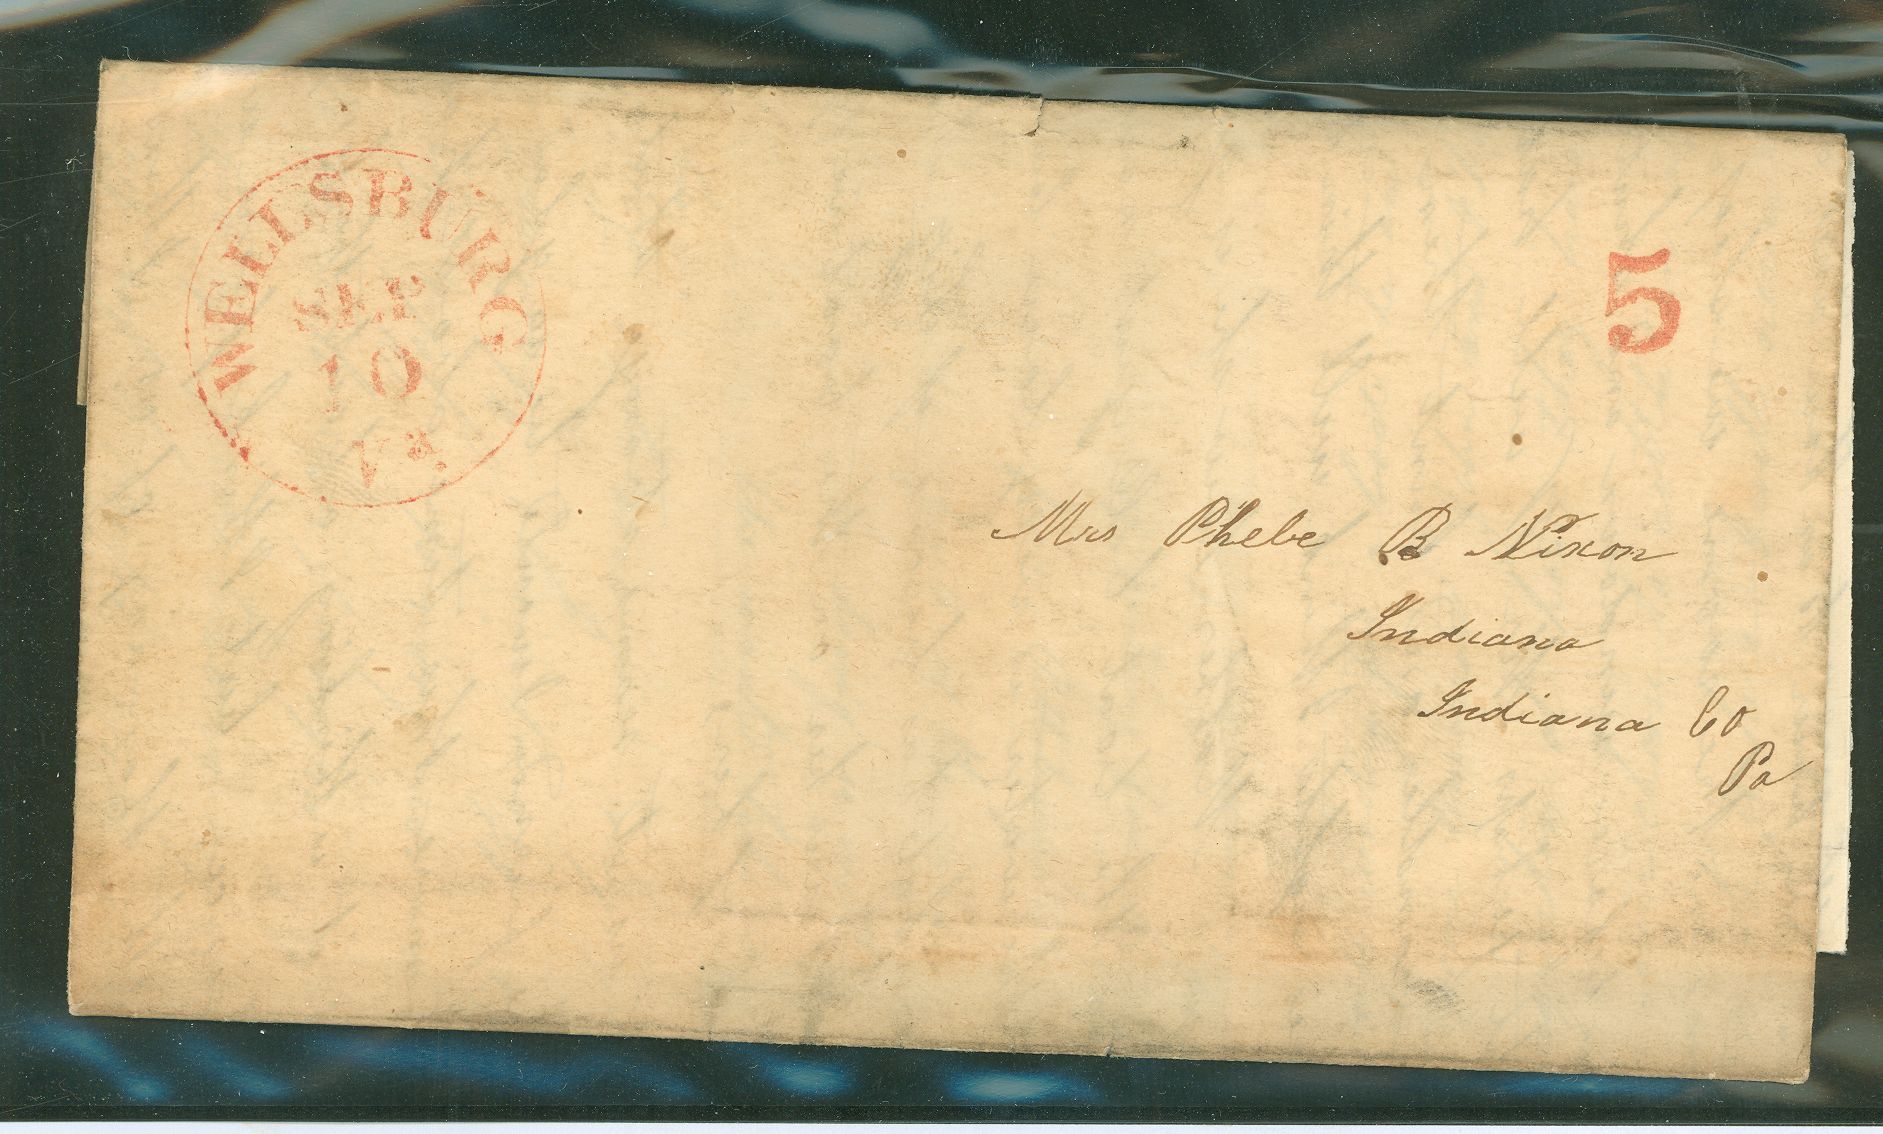 WELLSBURG
SEP
10
Va.
5
Mrs Phebe B Nixon
Indiana
Indiana Co
Pa